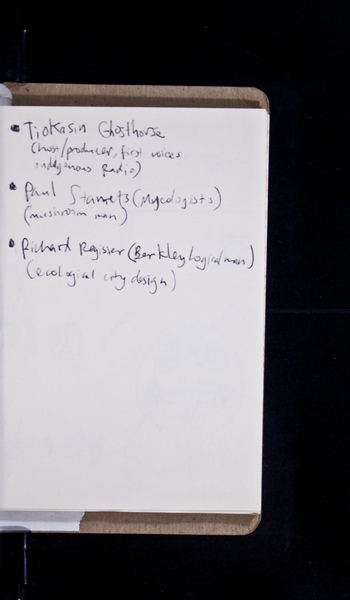 • Tiokasin Ghosthorse
(host/producer, first voices
indigenous Radio)
• Paul Stamets (Mycologists)
(mushroom man)
• Richard Register (Berkley logical man)
(ecological city design)